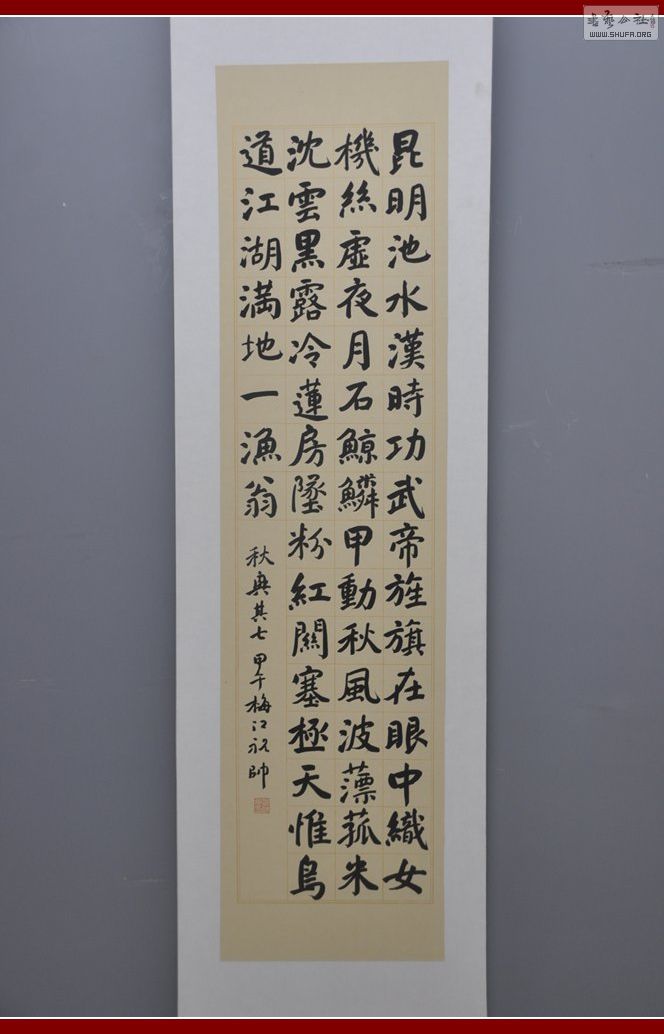 昆明池水漢時功武帝旌旗在眼中織女
機絲虛夜月石鯨鱗甲動秋風波薸菰米
沈雲黑露冷蓮房墜粉紅關塞極天惟鳥
道江湖満地一漁翁
秋興其七 甲午梅江祝帥
書藝公社
WWW.SHUFA.ORG